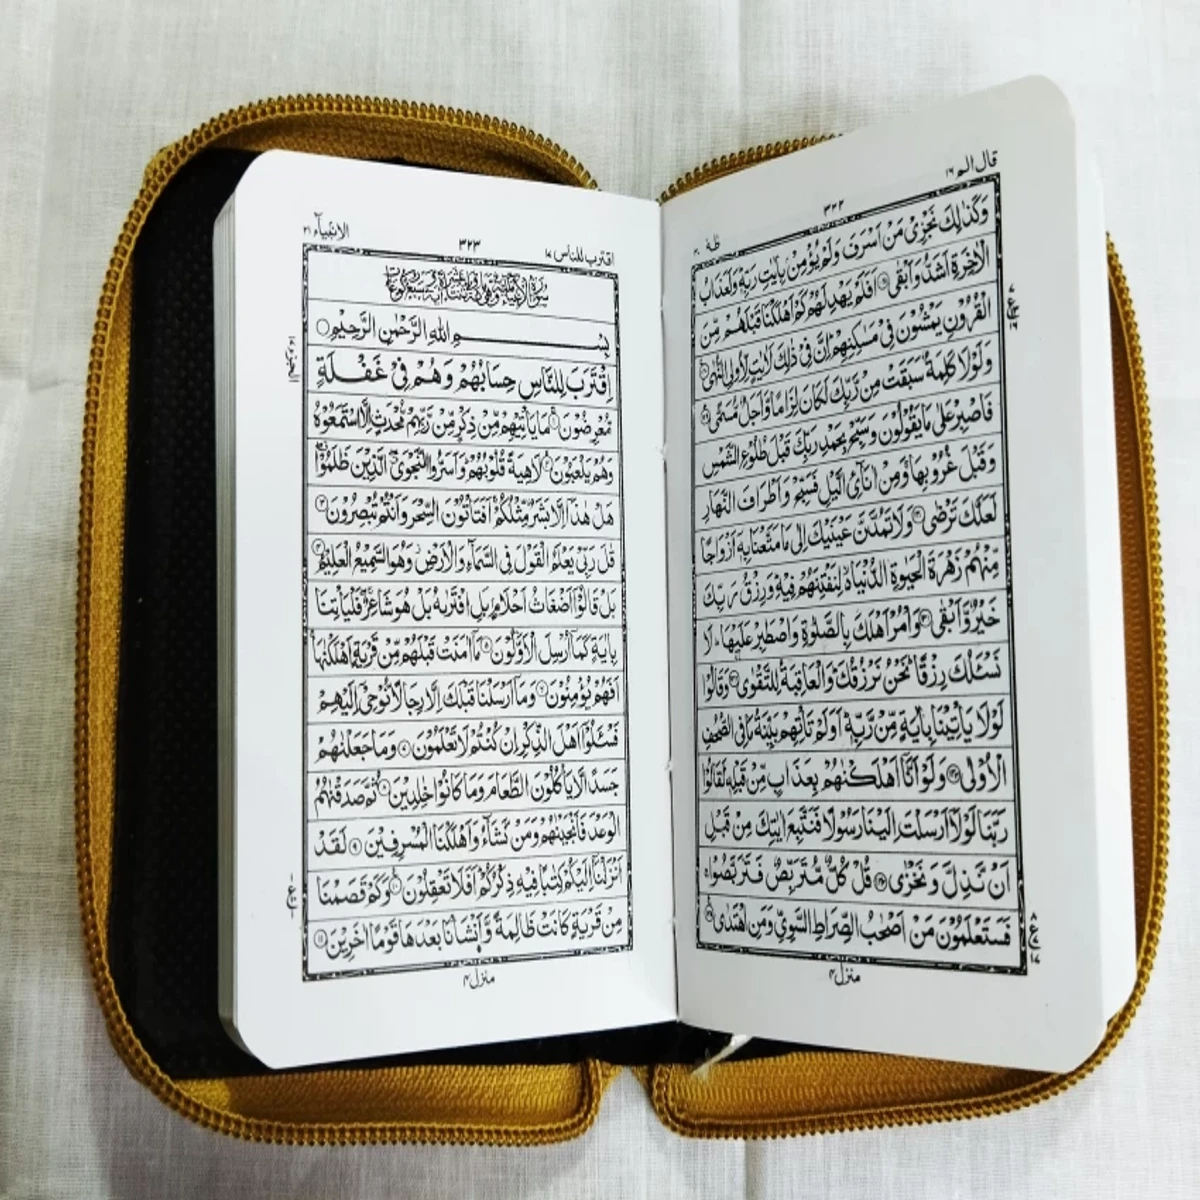 قال الم ١٦
٣٢٢
طٰهٰ ٢٠
وَكَذٰلِكَ نَجْزِیْ مَنْ اَسْرَفَ وَلَمْ یُؤْمِنْۢ بِاٰیٰتِ رَبِّهٖ وَلَعَذَابُ
الْاٰخِرَةِ اَشَدُّ وَاَبْقٰی اَفَلَمْ یَهْدِ لَهُمْ كَمْ اَهْلَكْنَا قَبْلَهُمْ مِّنَ
الْقُرُوْنِ یَمْشُوْنَ فِیْ مَسٰكِنِهِمْ اِنَّ فِیْ ذٰلِكَ لَاٰیٰتٍ لِّاُولِی النُّهٰی
وَلَوْلَا كَلِمَةٌ سَبَقَتْ مِنْ رَّبِّكَ لَكَانَ لِزَامًا وَّاَجَلٌ مُّسَمًّی
فَاصْبِرْ عَلٰی مَا یَقُوْلُوْنَ وَسَبِّحْ بِحَمْدِ رَبِّكَ قَبْلَ طُلُوْعِ الشَّمْسِ
وَقَبْلَ غُرُوْبِهَا وَمِنْ اٰنَآئِ الَّیْلِ فَسَبِّحْ وَاَطْرَافَ النَّهَارِ
لَعَلَّكَ تَرْضٰی وَلَا تَمُدَّنَّ عَیْنَیْكَ اِلٰی مَا مَتَّعْنَا بِهٖۤ اَزْوَاجًا
مِّنْهُمْ زَهْرَةَ الْحَیٰوةِ الدُّنْیَا لِنَفْتِنَهُمْ فِیْهِ وَرِزْقُ رَبِّكَ
خَیْرٌ وَّاَبْقٰی وَاْمُرْ اَهْلَكَ بِالصَّلٰوةِ وَاصْطَبِرْ عَلَیْهَا لَا
نَسْـَٔلُكَ رِزْقًا نَحْنُ نَرْزُقُكَ وَالْعَاقِبَةُ لِلتَّقْوٰی وَقَالُوْا
لَوْلَا یَاْتِیْنَا بِاٰیَةٍ مِّنْ رَّبِّهٖ اَوَلَمْ تَاْتِهِمْ بَیِّنَةُ مَا فِی الصُّحُفِ
الْاُوْلٰی وَلَوْ اَنَّاۤ اَهْلَكْنٰهُمْ بِعَذَابٍ مِّنْ قَبْلِهٖ لَقَالُوْا
رَبَّنَا لَوْلَاۤ اَرْسَلْتَ اِلَیْنَا رَسُوْلًا فَنَتَّبِعَ اٰیٰتِكَ مِنْ قَبْلِ
اَنْ نَّذِلَّ وَنَخْزٰی قُلْ كُلٌّ مُّتَرَبِّصٌ فَتَرَبَّصُوْا
فَسَتَعْلَمُوْنَ مَنْ اَصْحٰبُ الصِّرَاطِ السَّوِیِّ وَمَنِ اهْتَدٰی
منزل ٤
اقترب للناس ١٧
٣٢٣
الانبیآء ٢١
بِسْمِ اللّٰهِ الرَّحْمٰنِ الرَّحِیْمِ
اِقْتَرَبَ لِلنَّاسِ حِسَابُهُمْ وَهُمْ فِیْ غَفْلَةٍ
مُّعْرِضُوْنَ مَا یَاْتِیْهِمْ مِّنْ ذِكْرٍ مِّنْ رَّبِّهِمْ مُّحْدَثٍ اِلَّا اسْتَمَعُوْهُ
وَهُمْ یَلْعَبُوْنَ لَاهِیَةً قُلُوْبُهُمْ وَاَسَرُّوا النَّجْوَی الَّذِیْنَ ظَلَمُوْا
هَلْ هٰذَاۤ اِلَّا بَشَرٌ مِّثْلُكُمْ اَفَتَاْتُوْنَ السِّحْرَ وَاَنْتُمْ تُبْصِرُوْنَ
قٰلَ رَبِّیْ یَعْلَمُ الْقَوْلَ فِی السَّمَآءِ وَالْاَرْضِ وَهُوَ السَّمِیْعُ الْعَلِیْمُ
بَلْ قَالُوْۤا اَضْغَاثُ اَحْلَامٍ بَلِ افْتَرٰىهُ بَلْ هُوَ شَاعِرٌ فَلْیَاْتِنَا
بِاٰیَةٍ كَمَاۤ اُرْسِلَ الْاَوَّلُوْنَ مَاۤ اٰمَنَتْ قَبْلَهُمْ مِّنْ قَرْیَةٍ اَهْلَكْنٰهَا
اَفَهُمْ یُؤْمِنُوْنَ وَمَاۤ اَرْسَلْنَا قَبْلَكَ اِلَّا رِجَالًا نُّوْحِیْۤ اِلَیْهِمْ
فَسْـَٔلُوْۤا اَهْلَ الذِّكْرِ اِنْ كُنْتُمْ لَا تَعْلَمُوْنَ وَمَا جَعَلْنٰهُمْ
جَسَدًا لَّا یَاْكُلُوْنَ الطَّعَامَ وَمَا كَانُوْا خٰلِدِیْنَ ثُمَّ صَدَقْنٰهُمُ
الْوَعْدَ فَاَنْجَیْنٰهُمْ وَمَنْ نَّشَآءُ وَاَهْلَكْنَا الْمُسْرِفِیْنَ ٩ لَقَدْ
اَنْزَلْنَاۤ اِلَیْكُمْ كِتٰبًا فِیْهِ ذِكْرُكُمْ اَفَلَا تَعْقِلُوْنَ ١٠ وَكَمْ قَصَمْنَا
مِنْ قَرْیَةٍ كَانَتْ ظَالِمَةً وَّاَنْشَاْنَا بَعْدَهَا قَوْمًا اٰخَرِیْنَ ١١
منزل ٤